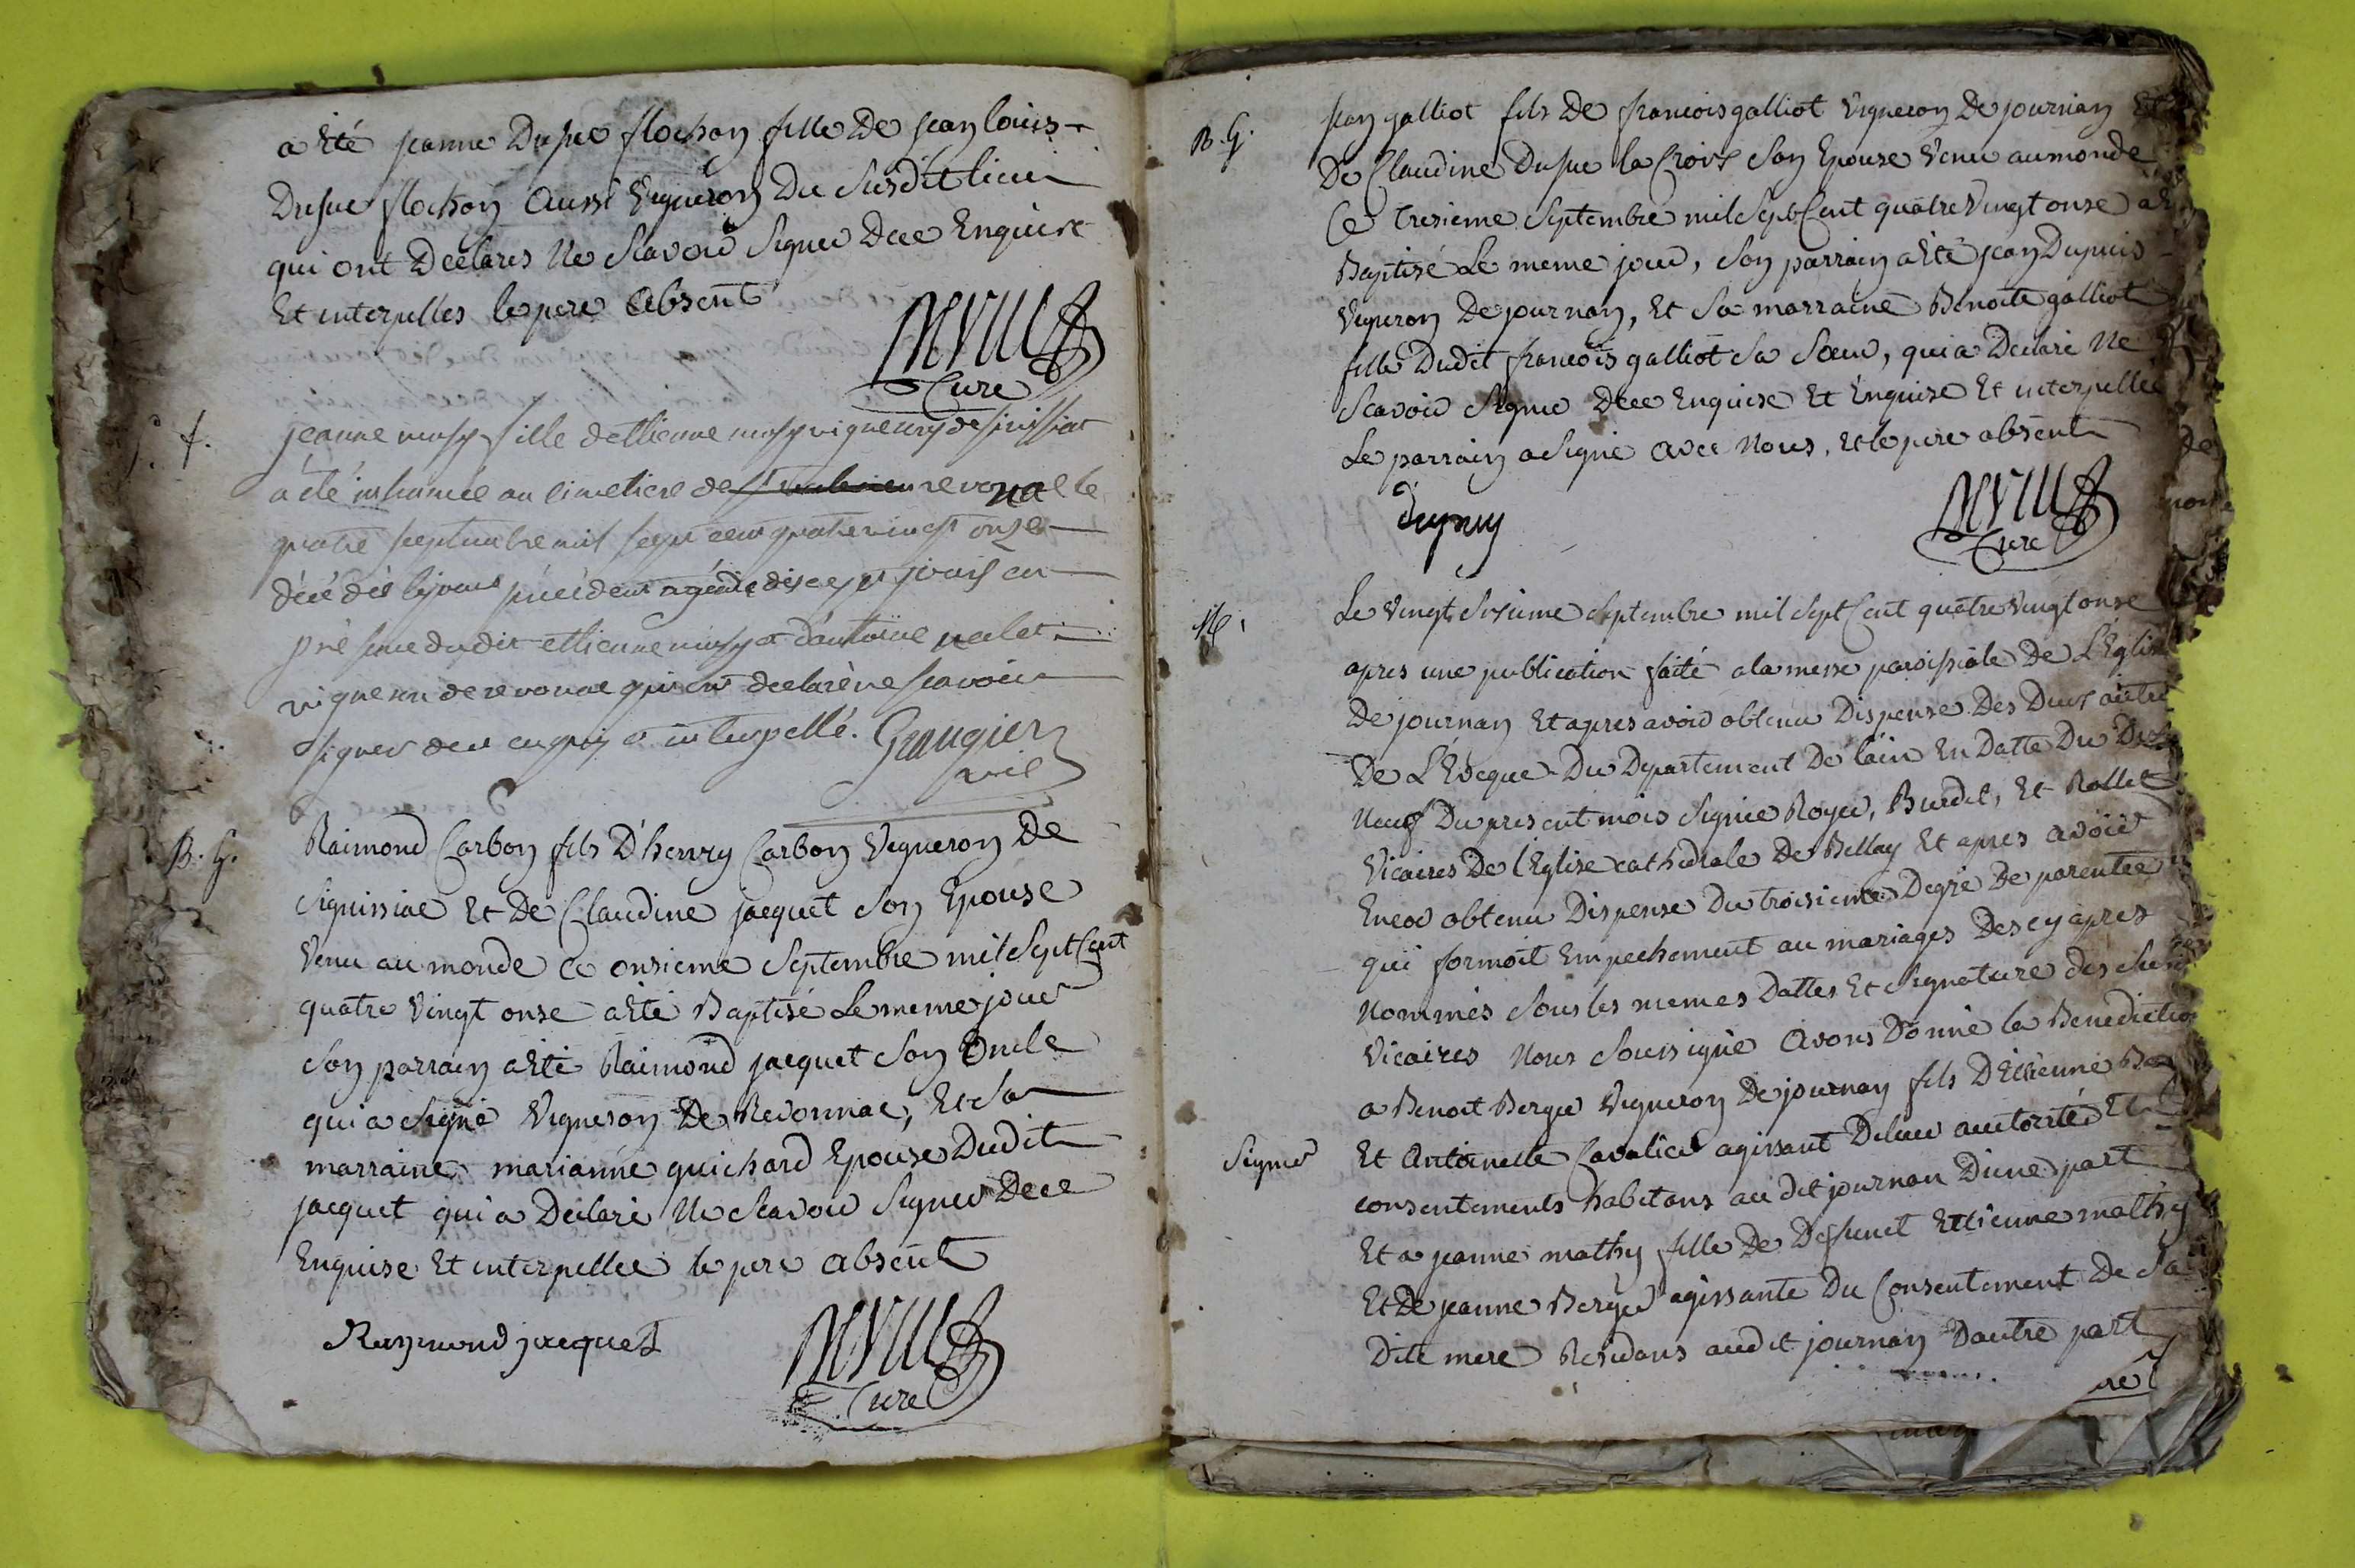 a Eté jeanne Dufue flochon fille De jean louis
Dufue flochon Aussi Vigneron Du Susdit lieu
qui ont Declarés Ne Scavoir Signer Dee Enquise
Et interpelles le pere Absent
Cure
jeanne fille dettienne vigneron de
a été inhumée au cimetiere de revonna le
quatre septembre mil sept cent quatre vingt onze
décédée le jour précédent agée de dis sept jours en
présence dudit ettienne et d'antoine
vigneron de revonac qui ont declaré ne scavoir
signer de ce enquis et interpellé. Graugier
B. G.
Raimond Carbon fils D'henry Carbon Vigneron De
Signissiac Et De Claudine jacquet Son Epouse
Venu au monde Ce onsieme Septembre mil Sept Cent
quatre Vingt onse a Eté Baptisé Le meme jour
Son parrain a Eté Raimond jacquet Son Oncle
qui a Signé Vigneron De Revonnac, Et Sa
marraine marianne guichard Epouse Dudit
jacquet qui a Declaré Ne Scavoir Signer Dece
Enquise Et interpellee le pere Absent
Raymond jacquet
Cure
B. G.
jean galliot fils De francois galliot Vigneron De journan Et
De Claudine Dufue la Croix Son Epouse Venu au monde
Ce tresieme Septembre mil Sept Cent quatre Vingt onse a
Baptisé Le meme jour, Son parrain a Eté jean Dupuis
Vigneron De journan, Et Sa marraine Benoite galliot
fille Dudit francois galliot Sa Sœur, qui a Declaré Ne
Scavoir Signer Dece Enquise Et Enquise Et interpellée
Le parrain a Signé Avec Nous, Et le pere absent
Dupuy
Cure
M.
Le Vingt Sixieme Septembre mil Sept Cent quatre Vingt onse
apres une publication faite a la messe paroissiale De L'Eglise
De journan Et apres avoir obtenu Dispense Des Deux autre
De L'Eveque Du Departement De l'ain En Datte Du Dix
Neuf Du present mois Signée Royer, Burdel, Et Rollet
Vicaires De l'Eglise cathedrale De Bellay Et apres avoir
Encor obtenu Dispense Du troisieme Degré De parentée
qui formoit Empechement au mariages Des cy apres
Nommés Sous les memes Dattes Et Signature des Susd
Vicaires Nous Soussigné Avons Donné la Benediction
a Benoit Berger Vigneron De journan fils D'Etienne Ber
Signer
Et Antoinette Cavalier agissant De leur auttorité Et
consentements habitans au dit journan D'une part
Et a jeanne mathy fille De Deffunct Ettienne mathy
Et De jeanne Berger agissante Du Consentement De Sa
Dite mere Residans audit journan D'autre part